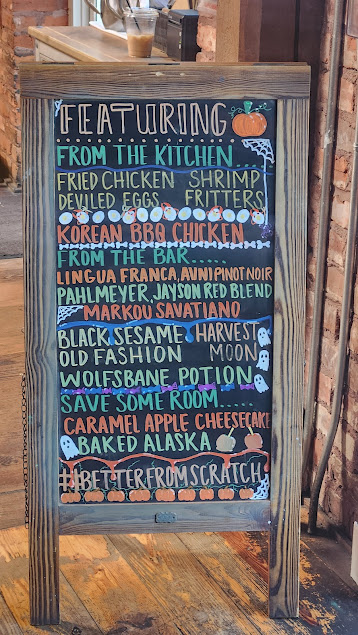 FEATURING
FROM THE KITCHEN....
FRIED CHICKEN SHRIMP
DEVILED EGGS FRITTERS
KOREAN BBQ CHICKEN
FROM THE BAR.....
LINGUA FRANCA, AVNI PINOT NOIR
PAHLMEYER, JAYSON RED BLEND
MARKOU SAVATIANO
BLACK SESAME HARVEST
OLD FASHION MOON
WOLFSBANE POTION
SAVE SOME ROOM.....
CARAMEL APPLE CHEESECAKE
BAKED ALASKA
#BETTERFROMSCRATCH